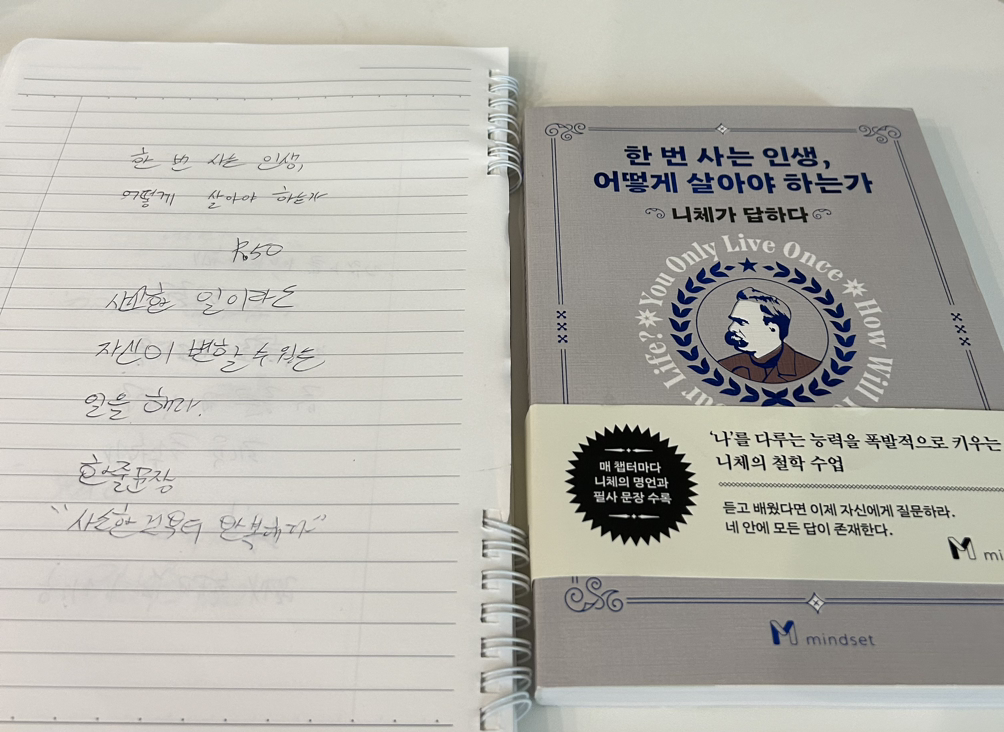 한 번 사는 인생,
어떻게 살아야 하는가
P.50
사소한 일이라도
자신이 변할 수 있는
일을 해라.
한줄문장
"사소한 것부터 반복하자"
한 번 사는 인생,
어떻게 살아야 하는가
니체가 답하다
You Only Live Once
How Will
Life?
매 챕터마다
니체의 명언과
필사 문장 수록
'나'를 다루는 능력을 폭발적으로 키우는
니체의 철학 수업
듣고 배웠다면 이제 자신에게 질문하라.
네 안에 모든 답이 존재한다.
M mi
M mindset